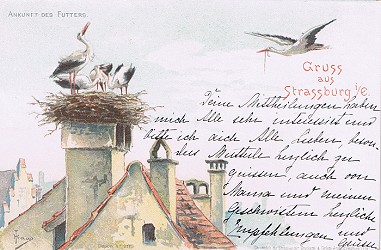 ANKUNFT DES FUTTERS.
Gruss
aus
Strassburg i/E.
Deine Mittheilungen haben
mich Alle sehr interessirt und
bitte ich dich Alle lieben, beson
ders herzlich zu
grüssen, auch von
Mama und meinen
Geschwistern herzliche
Empfehlungen und
Grüsse